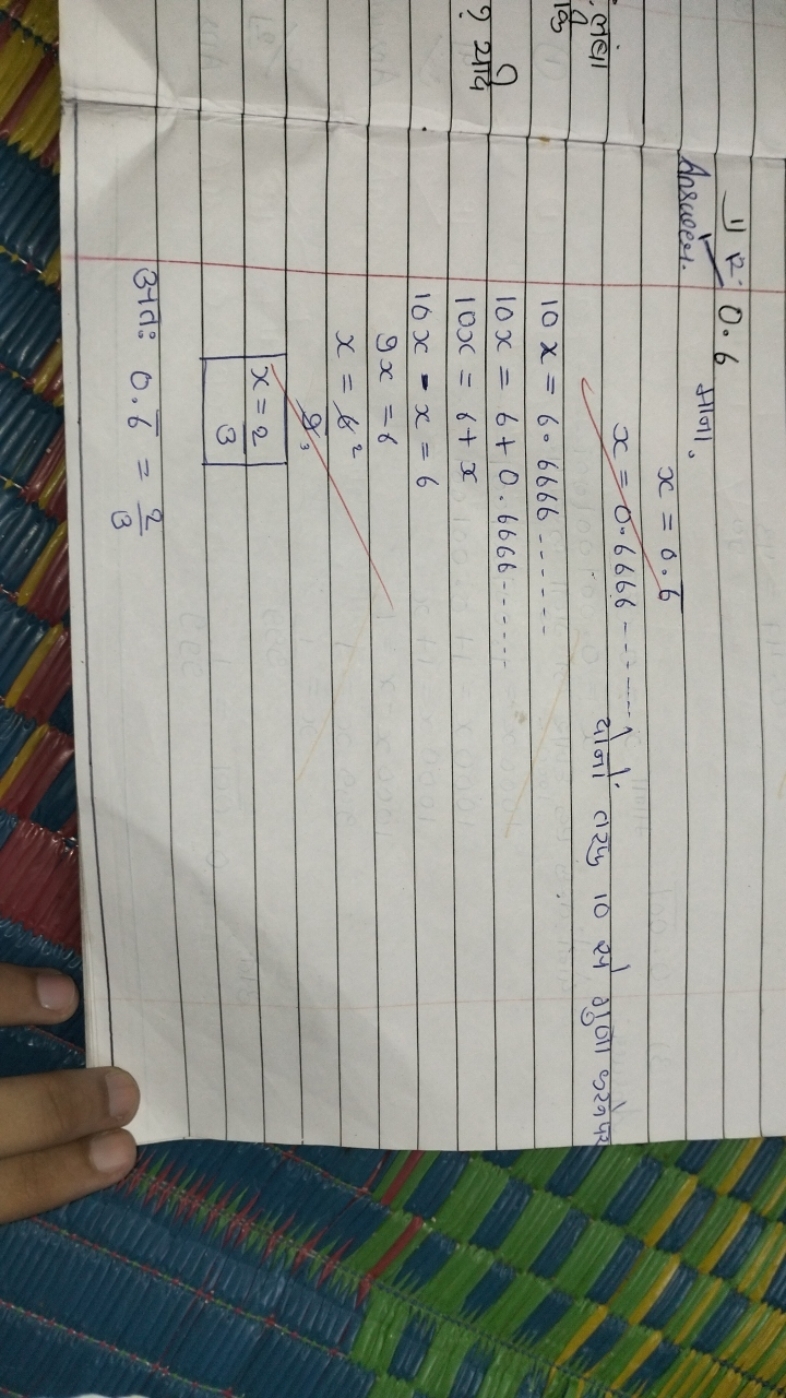 0.6
Answer.
माना,
x = 0.6̅
x = 0.6666 -------
दोनों तरफ 10 से गुणा करने पर
10x = 6.6666 -------
10x = 6 + 0.6666 -------
10x = 6 + x
10x - x = 6
9x = 6
x = 6̶ ² / 9̶ ³
x = 2/3
अतः 0.6̅ = 2/3